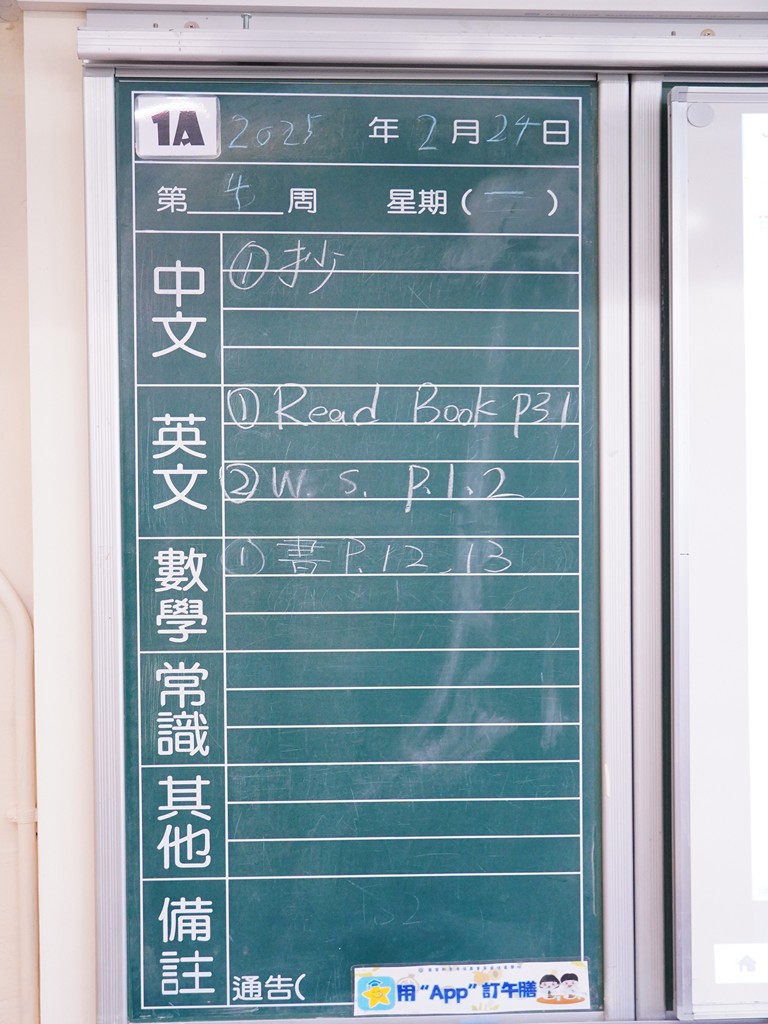 1A 2025 年 2 月 24 日
第 4 周 星期 ( 一 )
中文 ① 抄
英文 ① Read Book p31
② W. S. P.1.2
數學 ① 書 P.12.13
常識
其他
備註
通告(
用“App”訂午膳